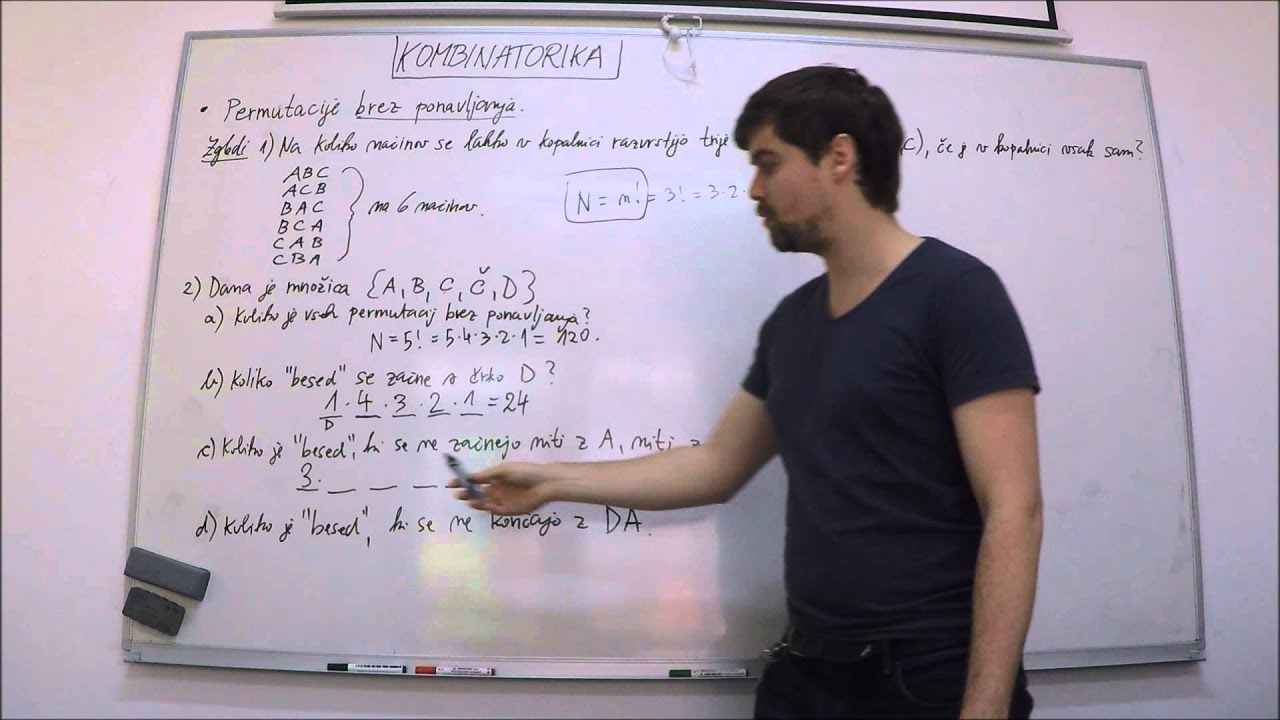 KOMBINATORIKA
• Permutacije brez ponavljanja.
Zgledi 1) Na koliko načinov se lahko v kopalnici razvrstijo trije C), če je v kopalnici vsak sam?
ABC
ACB
BAC
BCA
CAB
CBA
na 6 načinov.
N = n! = 3! = 3·2·
2) Dana je množica {A, B, C, Č, D}
a) Koliko je vseh permutacij brez ponavljanja?
N = 5! = 5·4·3·2·1 = 120.
b) Koliko "besed" se začne s črko D?
1·4·3·2·1 = 24
D
c) Koliko je "besed", ki se ne začnejo niti z A, niti z
3·_ _ _ _
d) Koliko je "besed", ki se ne končajo z DA.